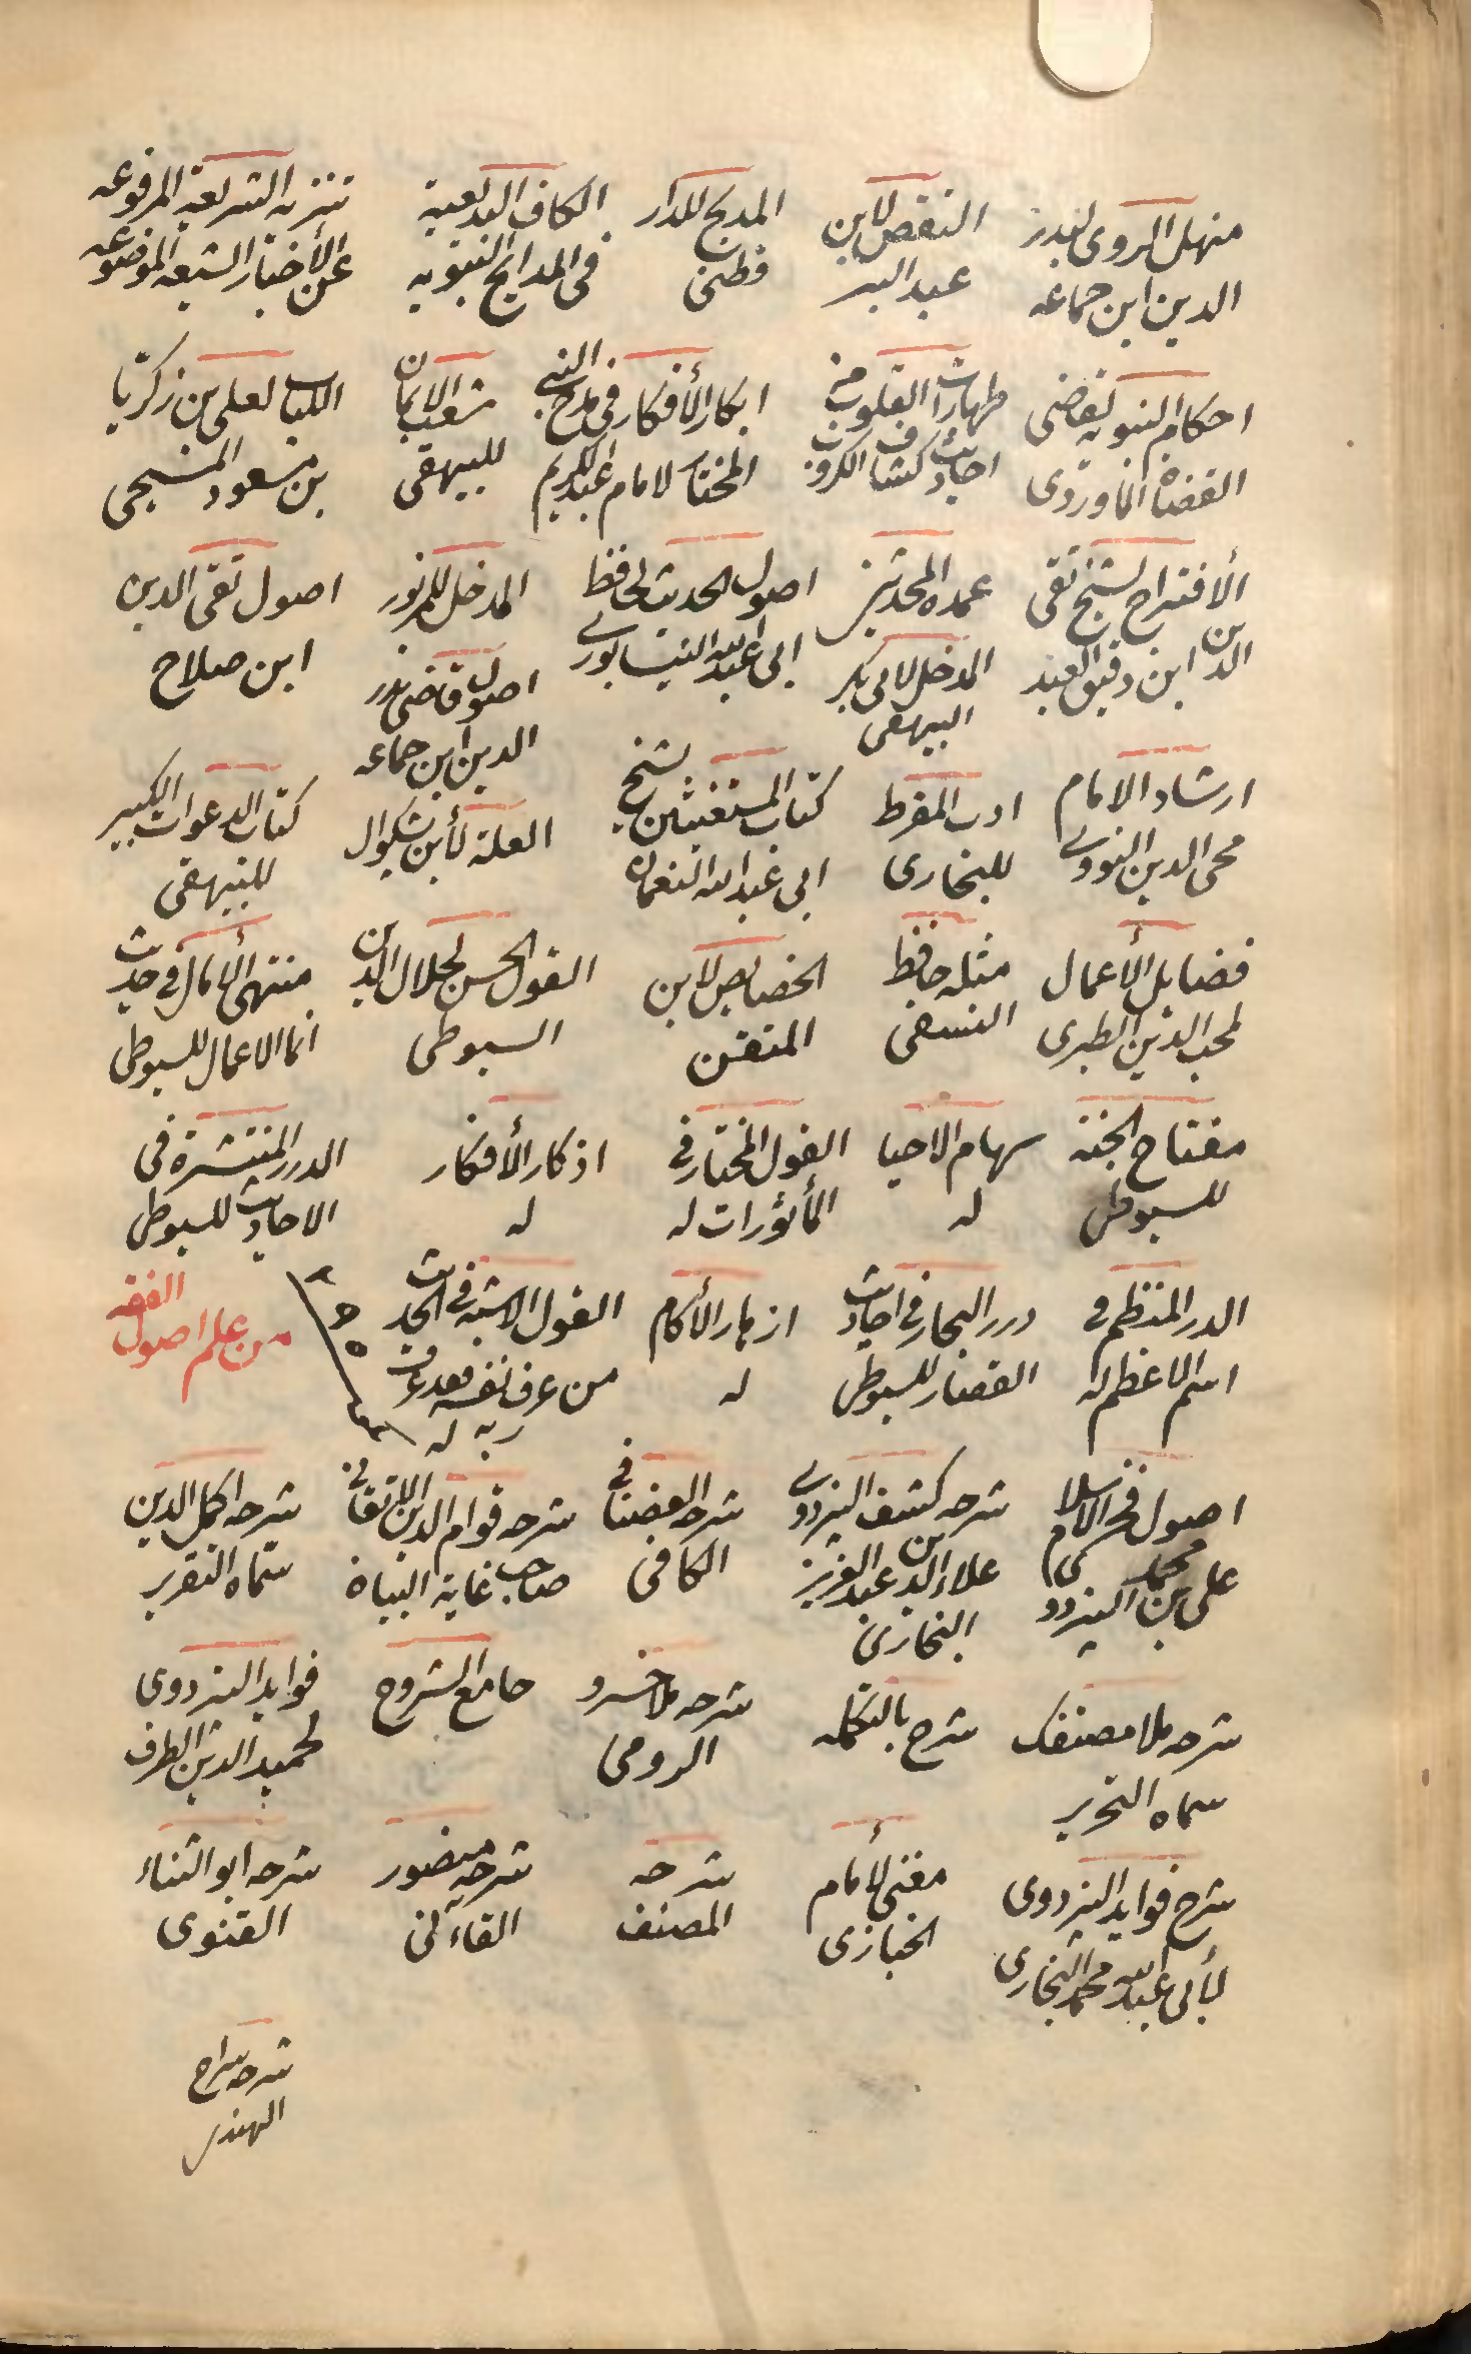 منهل الروى لبدر الدين ابن جماعه
النقص لابن عبد البر
المدبج للدار قطنى
الكاف البديعية فى المدايح النبويه
تنزيه الشريعة المرفوعه عن الأخبار الشيعه الموضوعه
احكام النبويه لقاضى القضاة الماوردى
طهارات القلوب من احاديث كشاف الكروب
ابكار الأفكار فى مدح النبى المختار لامام عبد الكريم
شعب الايمان للبيهقى
اللباب لعلى بن زكريا بن مسعود المنبجى
الأقتراح لشيخ تقى الدين ابن دقيق العيد
عمده المحدثين
المدخل لابى بكر البيهقى
اصول الحديث لحافظ ابى عبد الله النيسابورى
المدخل للمزبور
اصول قاضى بدر الدين ابن جماعه
اصول تقى الدين ابن صلاح
ارشاد الامام محى الدين النووى
ادب المفرط للبخارى
كتاب المستغيثين لشيخ ابى عبد الله النعمان
العلة لأبن بشكوال
كتاب الدعوات الكبير للبيهقى
فضايل الأعمال لمحب الدين الطبرى
مثله حافظ النسفى
الخصايص لابن المتقن
القول الحسن لجلال الدين السيوطى
منتهى الأمال فى حديث انما الاعمال للسيوطى
مفتاح الجنة للسيوطى
سهام الاحيا له
القول المختار فى المأثورات له
اذكار الأفكار له
الدرر المنتشرة فى الاحاديث للسيوطى
الدر المنتظم فى اسم الاعظم له
درر البحار فى احاديث القصار للسيوطى
ازهار الأكام له
القول الاشبه فى الحديث من عرف نفسه فقد عرف ربه له
من علم اصول الفقه
اصول فخر الاسلام على بن محمد البزدوى
شرحه كشف البزدوى علاء الدين عبد العزيز البخارى
شرحه العضنافى الكافى
شرحه قوام الدين الاتقانى صاحب غاية البيان
شرحه اكمل الدين سماه التقرير
شرحه ملا مصنفك سماه التحرير
شرح بالتكمله
شرحه ملا خسرو الرومى
جامع الشروح
فوايد البزدوى لحميد الدين الطرف
شرح فوايد البزدوى لأبى عبد الله محمد البخارى
مغنى لأمام الخبازى
شرحه المصنف
شرحه منصور القاءنى
شرحه ابو الثناء القنوى
شرحه سراج الهندى